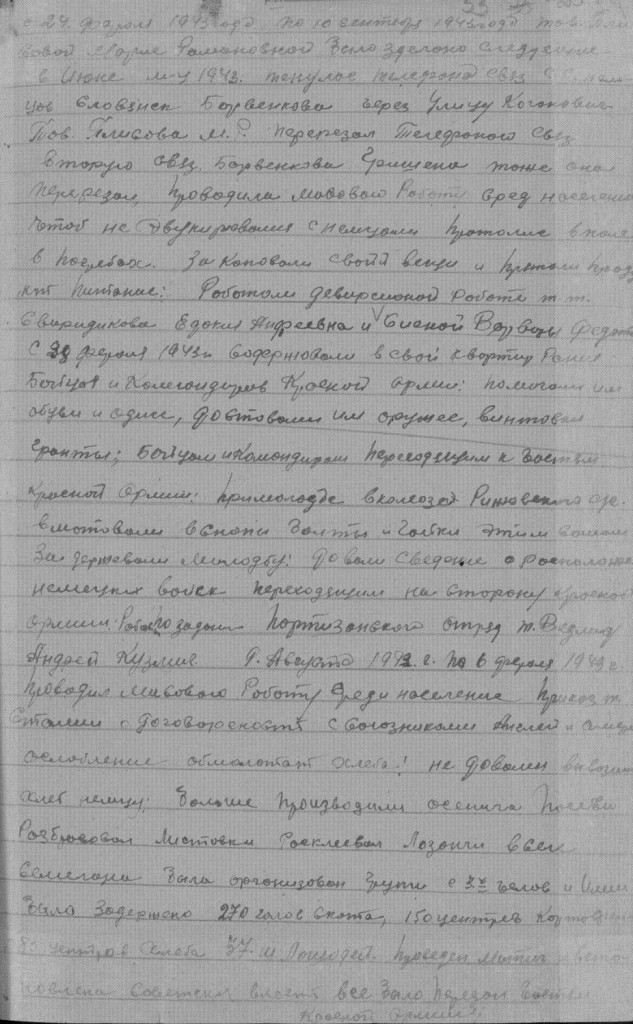 с 24. февраля 1943 года по 10 сентября 1943 года тов. Пли
вовой Марие Романовной было зделоно следующие
в Июне м-ц 1943. тянулос телефона связ с
цов Словянск Борвенкова через Улицу Когоновича
Тов. Пливова М. Р. перерезал Телефоного связ
вторую связ. Борвенкова Гришена тоже она
перерезал, проводила мовового Роботу сред населени
чтоб не Эвукировалися с немцами прятолис в поле
в погребах. Закоповали свойи вещи и прятоли прод
кт питание: Роботоли деверсионой роботе т. т.
Свиридикова Едокия Андреевна и Сиеной Варвары Федот
С 22 февраля 1943 г. содержовали в свой квортир Ранен
Бойцов и Комондиров Красной армии: помогали им
обуви и одеж, доставоли им оружее, винтовки
гранты; Бойцом и Комондиром переходящим к частям
красной Ормии: при молодбе в колхозах
в мотовали в снопы Болты и Гойки этим самым
Задержовали Молодбу: Довали Сведение о росположе
немецких войск переходящим на сторону красной
ормии. Робот по задан Портизонского отряд т. Ведмед
Андрей Кузмич Г. Августа 1942. г. по 6 февраля 1943 г.
проводил мовового Роботу среди население приказ т.
Сталин о договореност с союзниками Англей и Америк
ослобление обмолотат хлеба! не довали вывозит
хлеб немцу; больше производили осенига посеви
Розбросовал Листовки Росклеевал Лозонги в всех
Семегори была оргонизован групи с челов и Ими
было задержено 270 голов скота, 150 центнер Кортофил
центров хлеба 37. ш Лошодей. проведен митинг и встон
новлена советская власть все было передон частям
Красной Ормий.